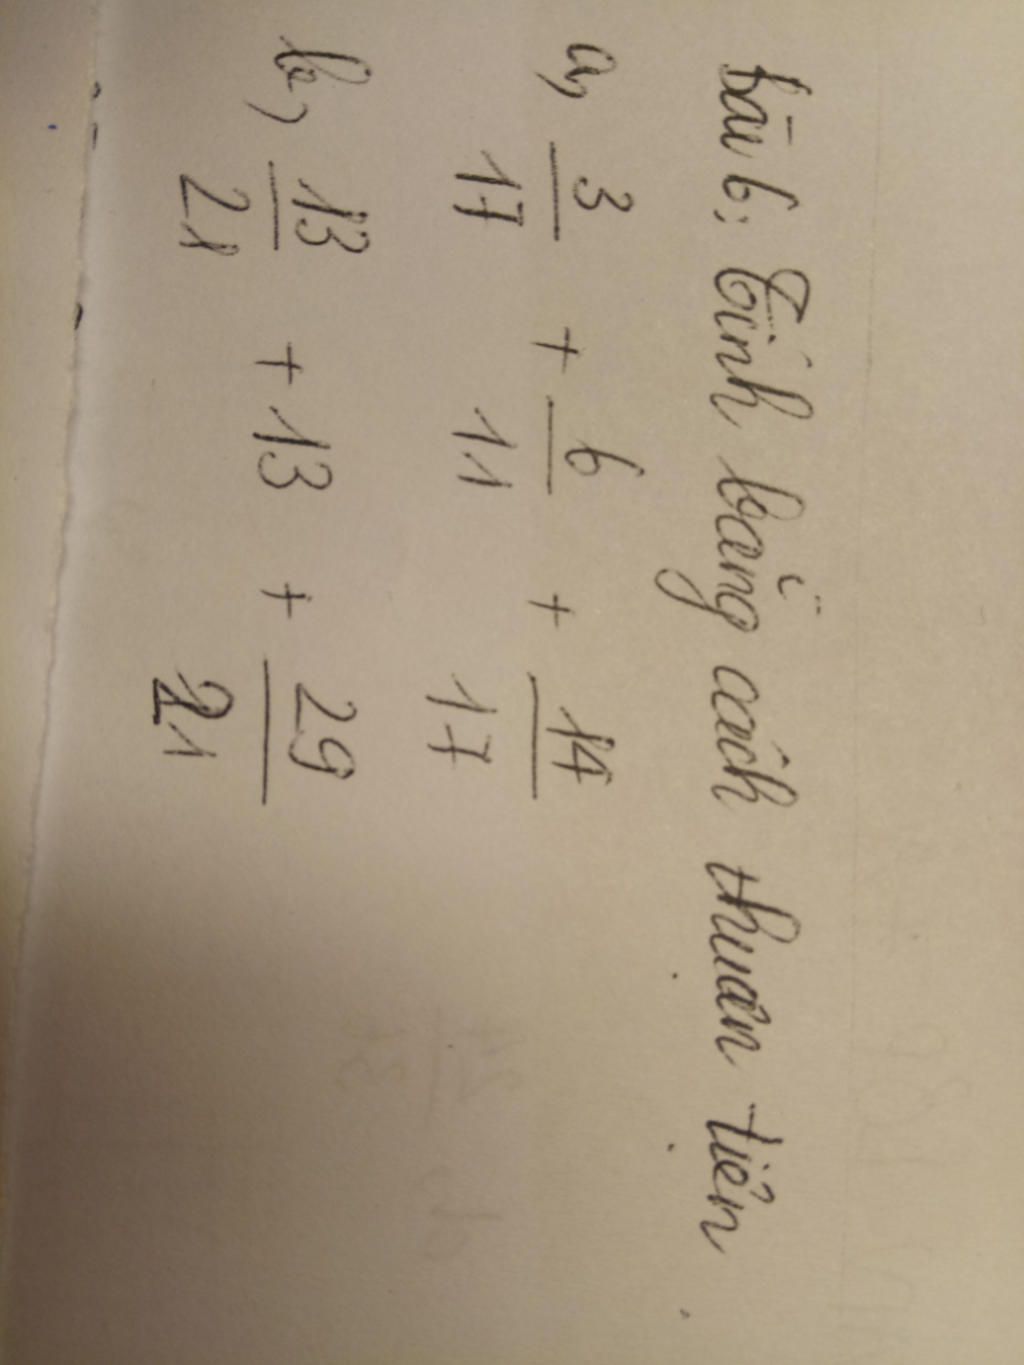 Bài 6: Tính bằng cách thuận tiện
a, 3/17 + 6/11 + 14/17
b, 13/21 + 13 + 29/21